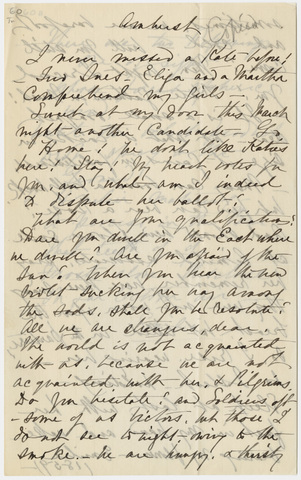 Amherst
I never missed a Kate before!
Two Sues – Eliza and a Martha
Comprehend my girls –
Sweet at my Door this March
night another Candidate – Go
Home! We don't like Katies
here! Stay! My heart votes for
you, and what am I indeed
to dispute her ballot!
What are your qualifications?
Dare you dwell in the East where
we dwell? Are you afraid of the
Sun? When you hear the new
violet sucking her way among
the sods, shall you be resolute?
All we are strangers, dear,
The world is not acquainted
with us, because we are not
acquainted with her, & Pilgrims.
Do you hesitate? and Soldiers oft
– some of us victors, but those I
do not see tonight, owing to the
smoke. – We are hungry, & thirsty